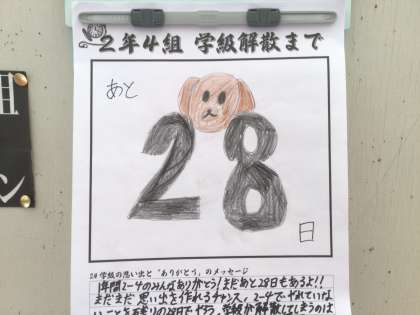 2年4組 学級解散まで
あと
28
日
24 学級の思い出と「ありがとう」のメッセージ
1年間2-4のみんなありがとう!まだあと28日もあるよ!!
まだまだ思い出を作れるチャンス。2-4でやれていな
いことを残りの28日でやろう。学級が解散してしまうのは
組
ン